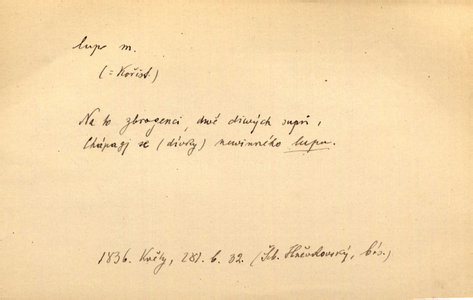 lup m.
(= Kořist.)
Na to zbrogenci, dwě diwých supů,
Chápagj se (dívky) newinného lupu.
1836. Květy, 281. b. 32. (Šeb. Hněvkovský, bás.)